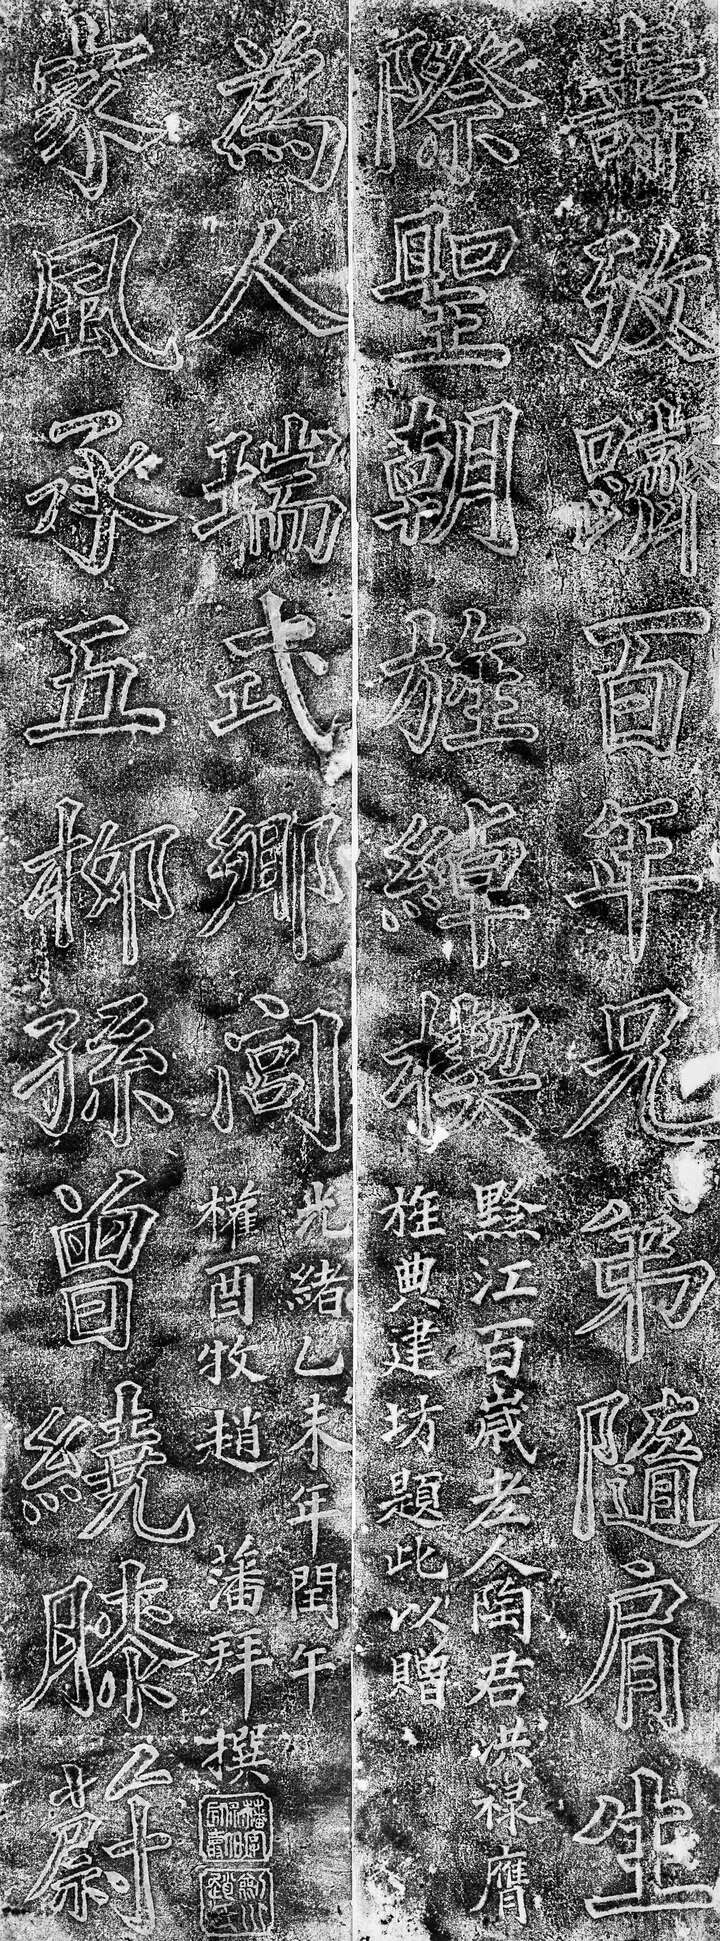 壽攷躋百年兄弟隨肩生
際聖朝旌綽楔
黔江百歲老人陶君洪祿膺
旌典建坊題此以贈
家風承五柳孫曾繞膝蔚
為人瑞式鄉閭
光緒乙未年閏午
權酉牧趙 藩拜撰